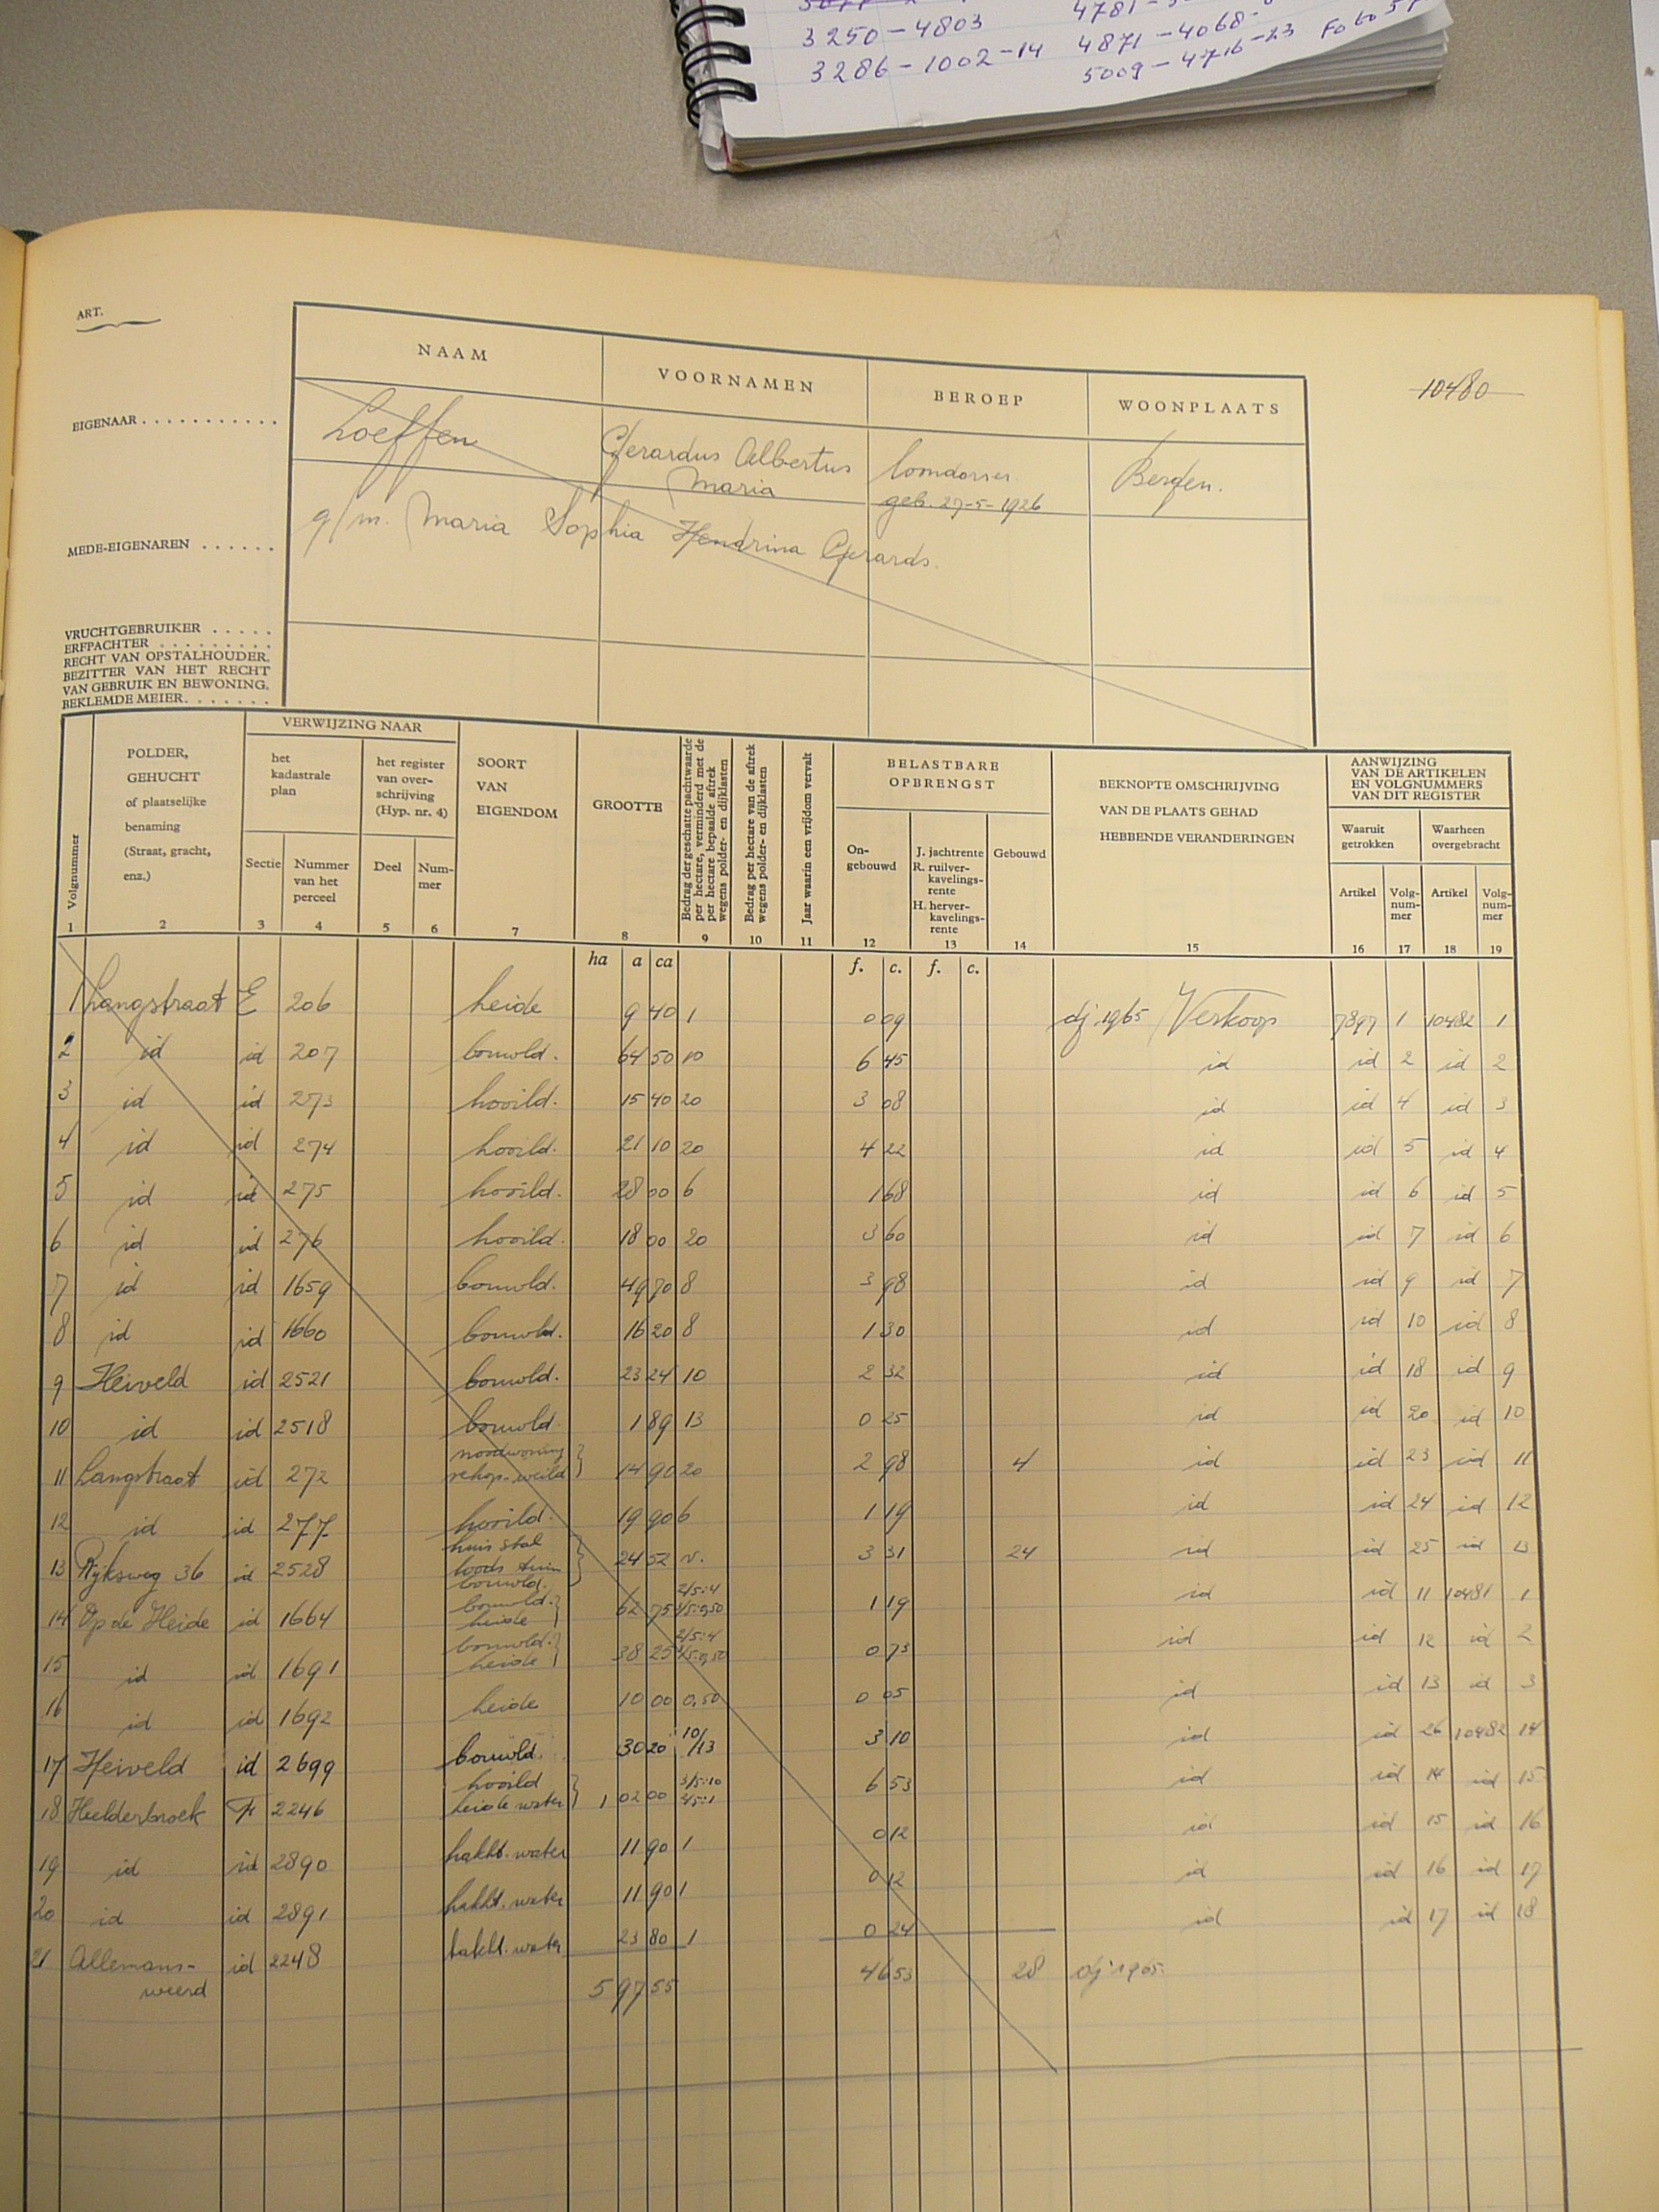 3250-4803
3286-1002-14
4871-4068-
5009-4716-23 Foto 57
ART.
10480
NAAM VOORNAMEN BEROEP WOONPLAATS
EIGENAAR
Loeffen Gerardus Albertus Maria geb. 27-5-1926 Bergen.
MEDE-EIGENAREN
g/m. Maria Sophia Hendrina Gerards.
VRUCHTGEBRUIKER
ERFPACHTER
RECHT VAN OPSTALHOUDER,
BEZITTER VAN HET RECHT
VAN GEBRUIK EN BEWONING,
BEKLEMDE MEIER
Volgnummer
POLDER, GEHUCHT of plaatselijke benaming (Straat, gracht, enz.)
VERWIJZING NAAR
het kadastrale plan
Sectie
Nummer van het perceel
het register van overschrijving (Hyp. nr. 4)
Deel
Num-mer
SOORT VAN EIGENDOM
GROOTTE
Bedrag der geschatte pachtwaarde per hectare, verminderd met de per hectare bepaalde aftrek wegens polder- en dijklasten
Bedrag per hectare van de aftrek wegens polder- en dijklasten
Jaar waarin een vrijdom vervalt
BELASTBARE OPBRENGST
On-gebouwd
J. jachtrente
R. ruilver-kavelings-rente
H. herver-kavelings-rente
Gebouwd
BEKNOPTE OMSCHRIJVING VAN DE PLAATS GEHAD HEBBENDE VERANDERINGEN
AANWIJZING VAN DE ARTIKELEN EN VOLGNUMMERS VAN DIT REGISTER
Waaruit getrokken
Waarheen overgebracht
Artikel Volg-num-mer Artikel Volg-num-mer
1 2 3 4 5 6 7 8 9 10 11 12 13 14 15 16 17 18 19
ha a ca f. c. f. c.
1 Langstraat E 206 heide 9 40 1 0 09 dj 1965 Verkoop 7897 1 10482 1
2 id id 207 bouwld. 64 50 10 6 45 id id 2 id 2
3 id id 273 hooild. 15 40 20 3 08 id id 4 id 3
4 id id 274 hooild. 21 10 20 4 22 id id 5 id 4
5 id id 275 hooild. 28 00 6 1 68 id id 6 id 5
6 id id 276 hooild. 18 00 20 3 60 id id 7 id 6
7 id id 1659 bouwld. 49 70 8 3 98 id id 9 id 7
8 id id 1660 bouwld. 16 20 8 1 30 id id 10 id 8
9 Heiveld id 2521 bouwld. 23 24 10 2 32 id id 18 id 9
10 id id 2518 bouwld. 1 89 13 0 25 id id 20 id 10
11 Langstraat id 272 noodwoning schop-weild 14 90 20 2 98 4 id id 23 id 11
12 id id 277 hooild. 19 90 6 1 19 id id 24 id 12
13 Rijksweg 36 id 2528 huis stal loods tuin bouwld. 24 52 v. 3 31 24 id id 25 id 13
14 Op de Heide id 1664 bouwld. heide 62 75 2/5:4 3/5:0,50 1 19 id id 11 10481 1
15 id id 1691 bouwld. heide 38 25 2/5:4 3/5:0,50 0 73 id id 12 id 2
16 id id 1692 heide 10 00 0,50 0 05 id id 13 id 3
17 Heiveld id 2699 bouwld. 30 20 10/13 3 10 id id 26 10482 14
18 Heelderbroek F 2246 hooild heide water 1 02 00 6 53 id id 14 id 15
19 id id 2890 hakht. water 11 90 1 0 12 id id 15 id 16
20 id id 2891 hakht. water 11 90 1 0 12 id id 16 id 17
21 Allemans-weerd id 2248 hakht. water 23 80 1 0 24 id id 17 id 18
5 97 55 46 53 28 dj 1965.